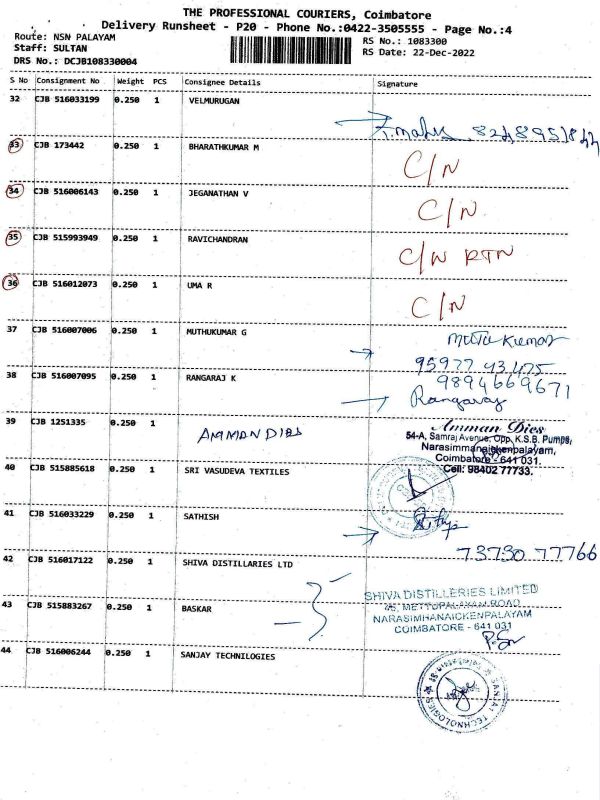 THE PROFESSIONAL COURIERS, Coimbatore
Delivery Runsheet - P20 - Phone No.:0422-3505555 - Page No.:4
Route: NSN PALAYAM RS No.: 1083300
Staff: SULTAN RS Date: 22-Dec-2022
DRS No.: DCJB108330004
S No Consignment No Weight PCS Consignee Details Signature
32 CJB 516033199 0.250 1 VELMURUGAN
8248951844
33 CJB 173442 0.250 1 BHARATHKUMAR M C/N
34 CJB 516006143 0.250 1 JEGANATHAN V C/N
35 CJB 515993949 0.250 1 RAVICHANDRAN C/N RTN
36 CJB 516012073 0.250 1 UMA R C/N
37 CJB 516007006 0.250 1 MUTHUKUMAR G Mutukumar
95977 43475
38 CJB 516007095 0.250 1 RANGARAJ K 9894669671
Rangaraj
39 CJB 1251335 0.250 1 AMMAN DIES Amman Dies
54-A, Samraj Avenue, Opp. K.S.B. Pumps,
Narasimmanaickenpalayam,
Coimbatore - 641 031.
Cell: 98402 77733.
40 CJB 515885618 0.250 1 SRI VASUDEVA TEXTILES
41 CJB 516033229 0.250 1 SATHISH
73730 77766
42 CJB 516017122 0.250 1 SHIVA DISTILLARIES LTD
SHIVA DISTILLERIES LIMITED
45, METTUPALAYAM ROAD
43 CJB 515883267 0.250 1 BASKAR NARASIMHANAICKENPALAYAM
COIMBATORE - 641 031
44 CJB 516006244 0.250 1 SANJAY TECHNILOGIES
SANJAI TECHNOLOGIES